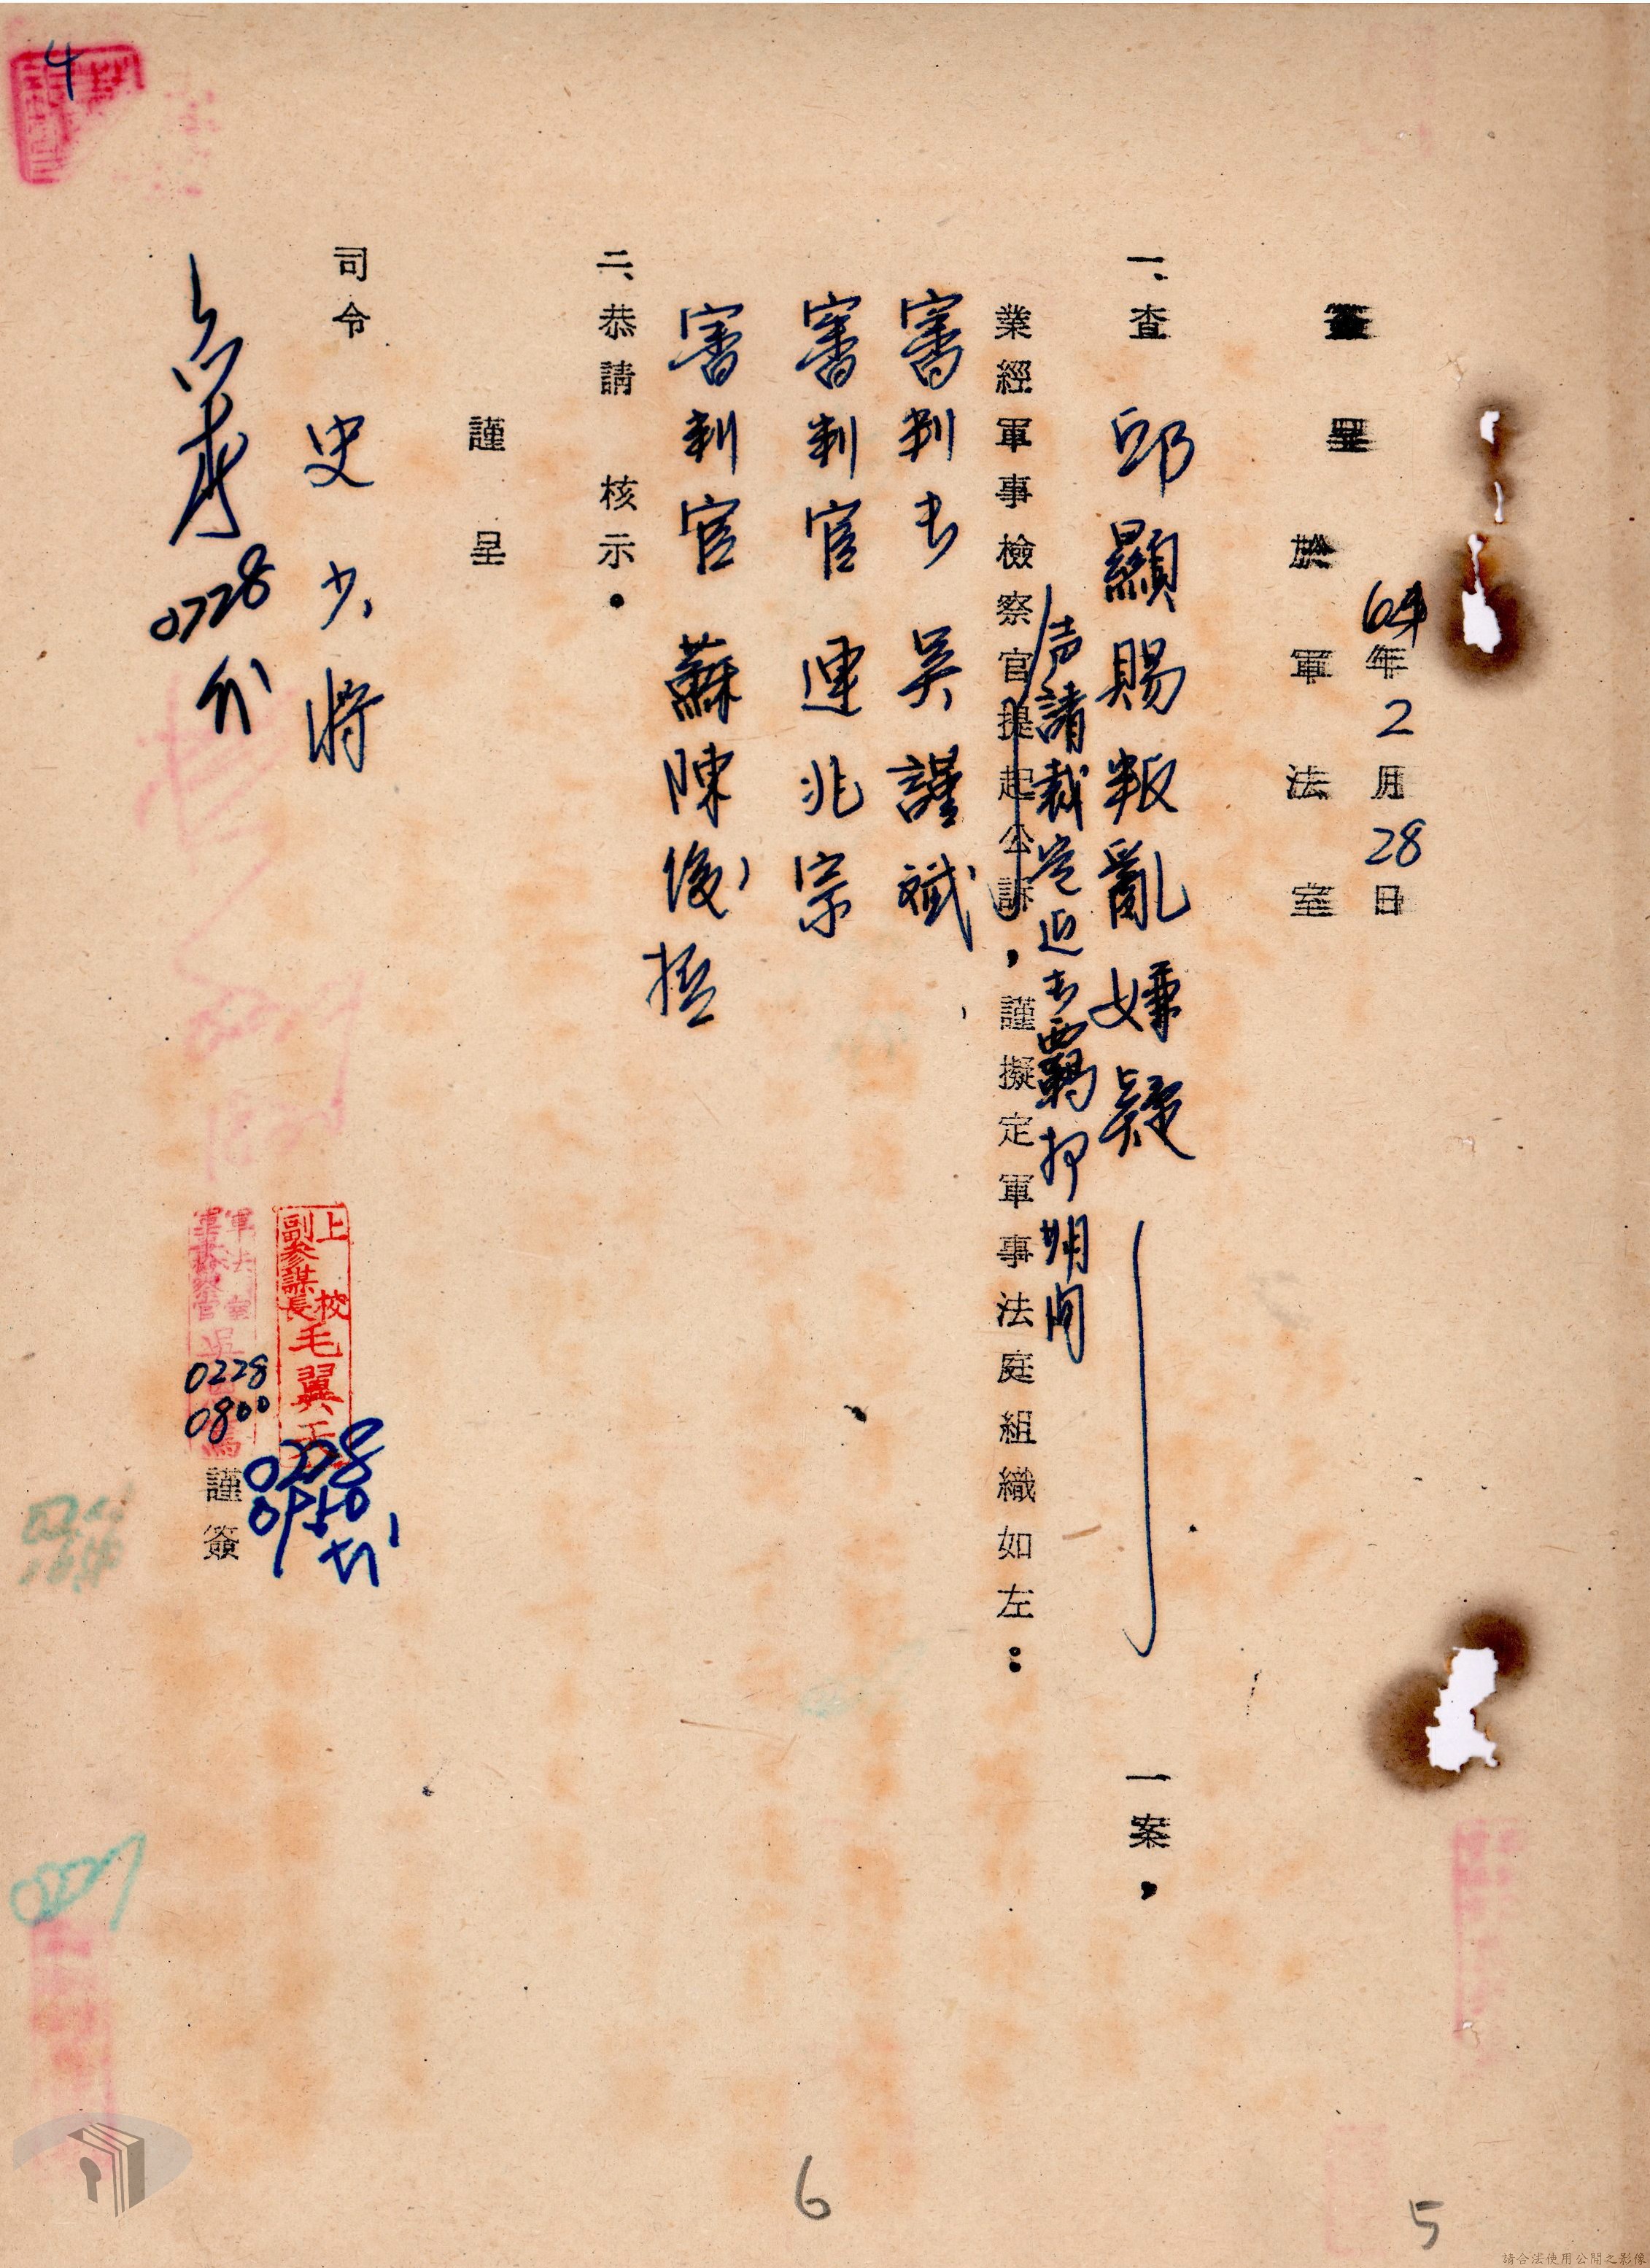 簽呈
64年2月28日
於軍法室
一、查 邱顯賜叛亂嫌疑 一案，
声請裁定延長羈押期間
業經軍事檢察官提起公訴，謹擬定軍事法庭組織如左：
審判長 吳謹斌
審判官 連兆宗
審判官 蘇陳俊
二、恭請 核示。
謹呈
司令 史少將
上校
副參謀長 毛翼
0228
軍法室
軍事檢察官 吳
0228
0800
謹簽
4
6
5
請合法使用公開之影像